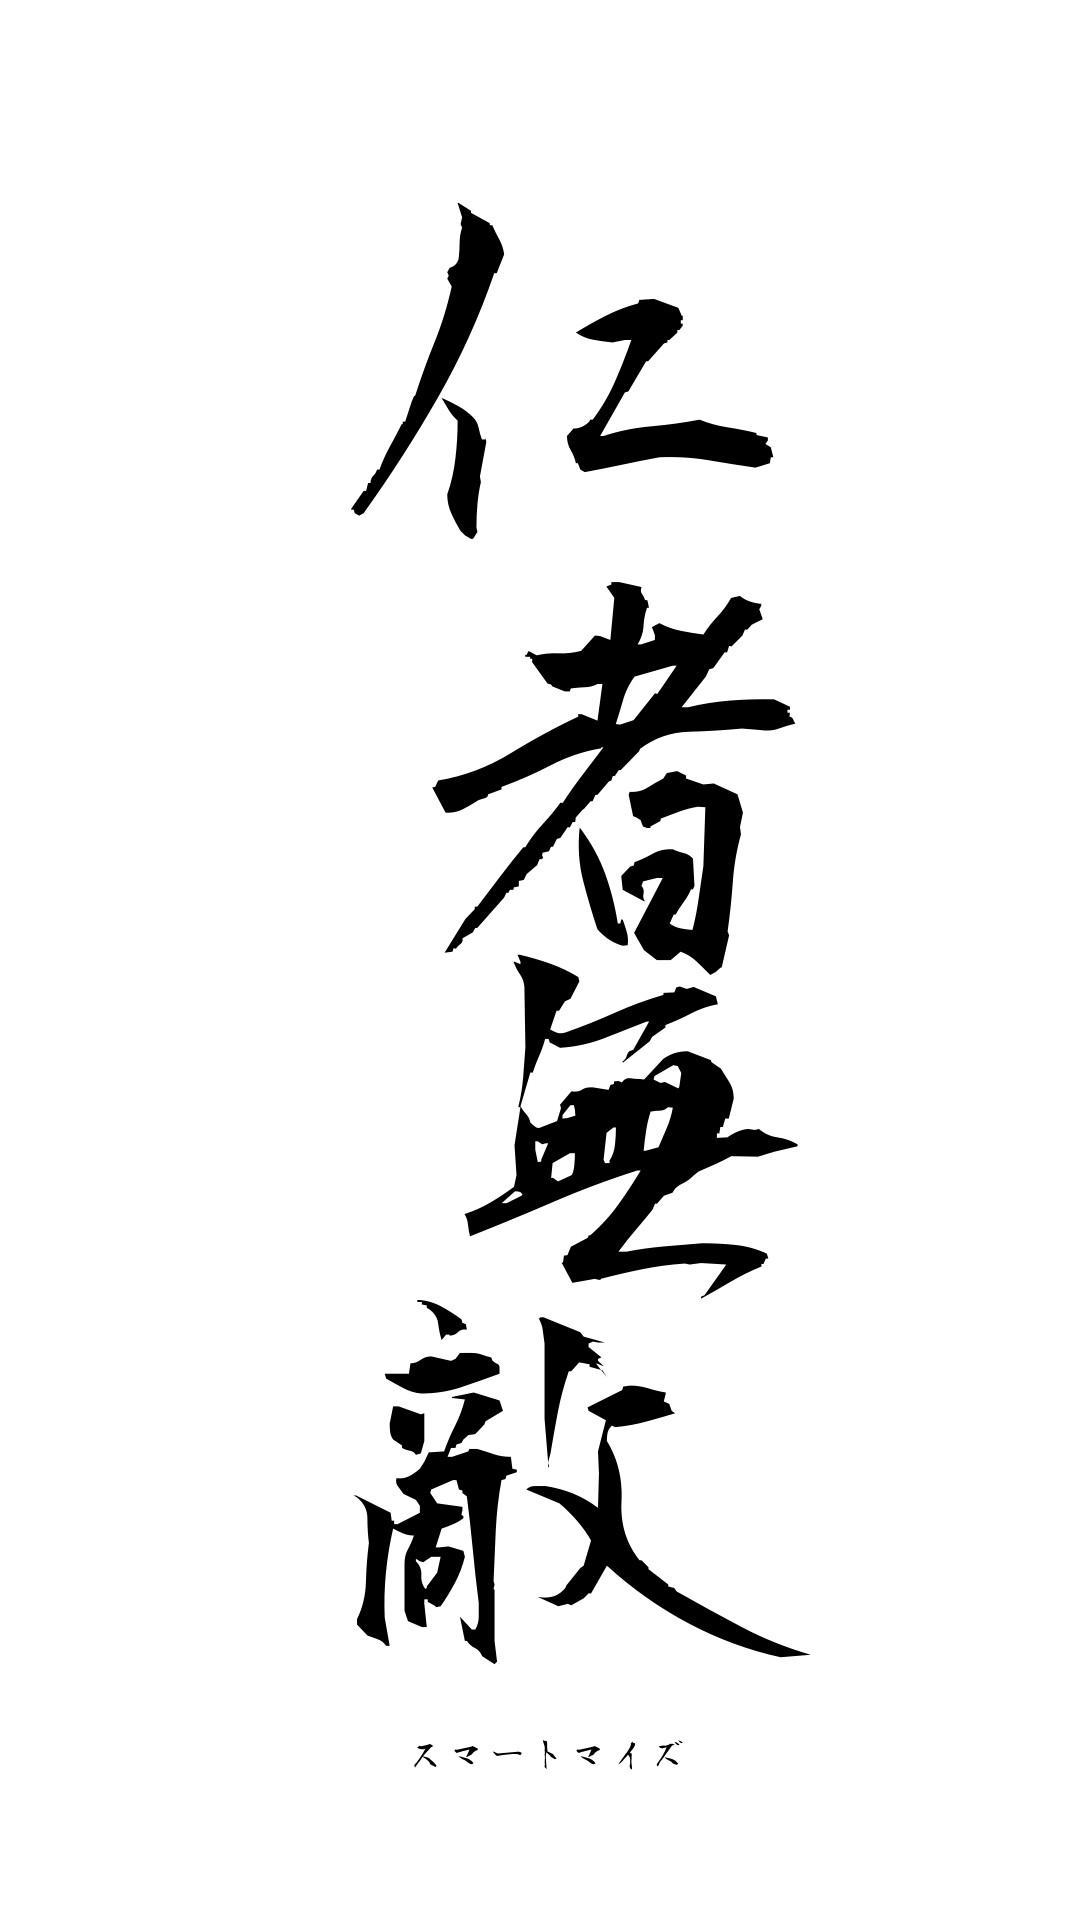 仁者無敵
スマートマイズ